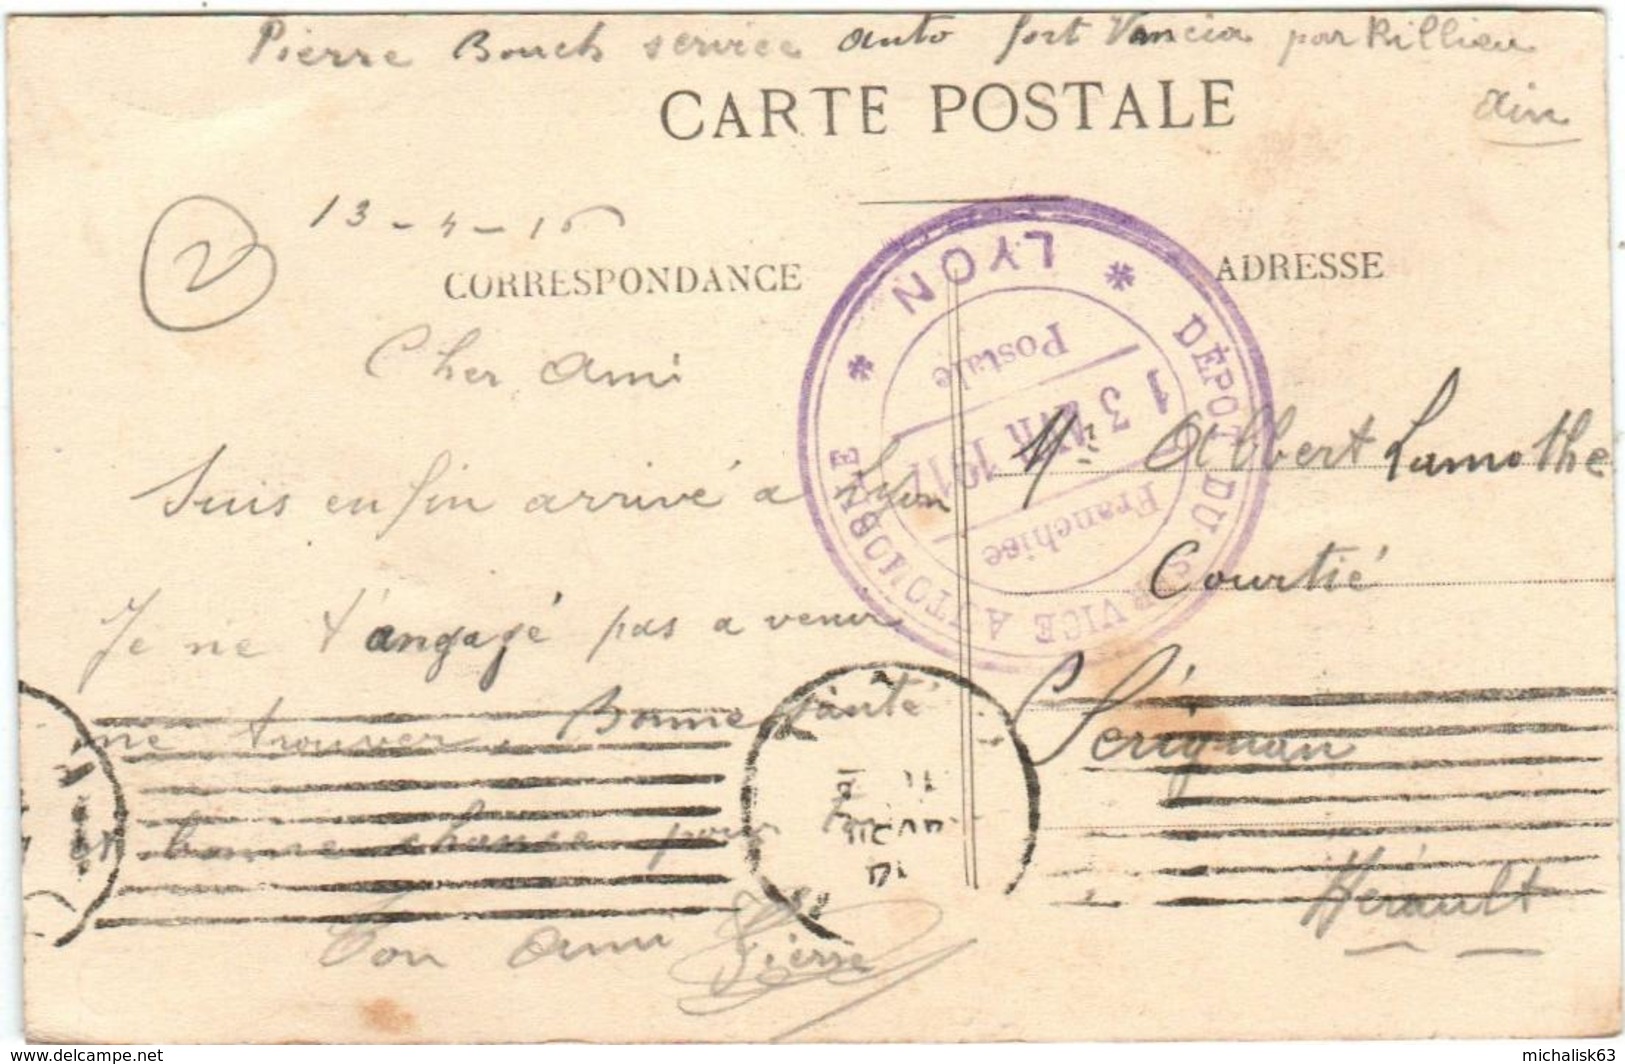 Pierre Bouch service auto fort Vancia par Rillieu
Ain
CARTE POSTALE
13-4-16
2
CORRESPONDANCE
ADRESSE
Cher Ami
Suis enfin arrivé a Lyon
Je ne t'angagé pas a venir
me trouver. Bonne santé
et bonne chance pour toi
Ton ami Pierre
Mr Albert Lamothe
Courtié
Sérignan
Hérault
* LYON *
DÉPOT DU SERVICE AUTOMOBILE
Franchise
13 AVR 1917
Postale
www.delcampe.net
michalisk63